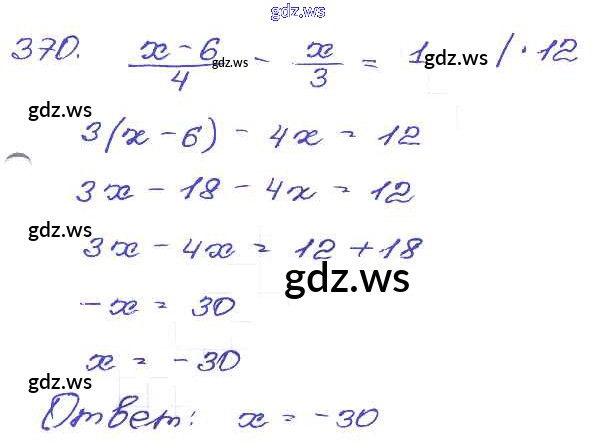 gdz.ws
370. (x - 6)/4 - x/3 = 1 / · 12
gdz.ws gdz.ws
gdz.ws
3(x - 6) - 4x = 12
3x - 18 - 4x = 12
gdz.ws
3x - 4x = 12 + 18
gdz.ws
-x = 30
x = -30
gdz.ws
Ответ: x = -30